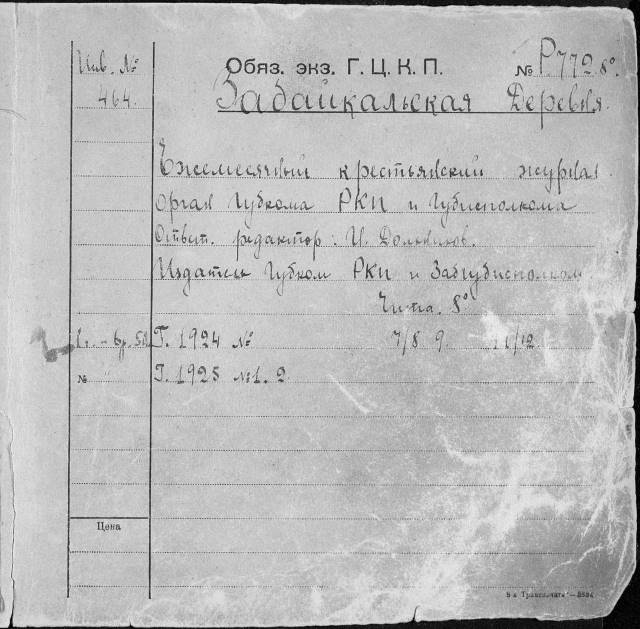 Инв. №
464
Обяз. экз. Г. Ц. К. П. № Р.772 8°.
Забайкальская Деревня.
Ежемесячный крестьянский журнал
Орган Губкома РКП и Губисполкома
Ответ. редактор: И.
Издатель Губком РКП и Забгубисполком
Чита. 8°
Г. 1924 № 7/8 9. 11/12
№ Г. 1925 №1. 2
Цена